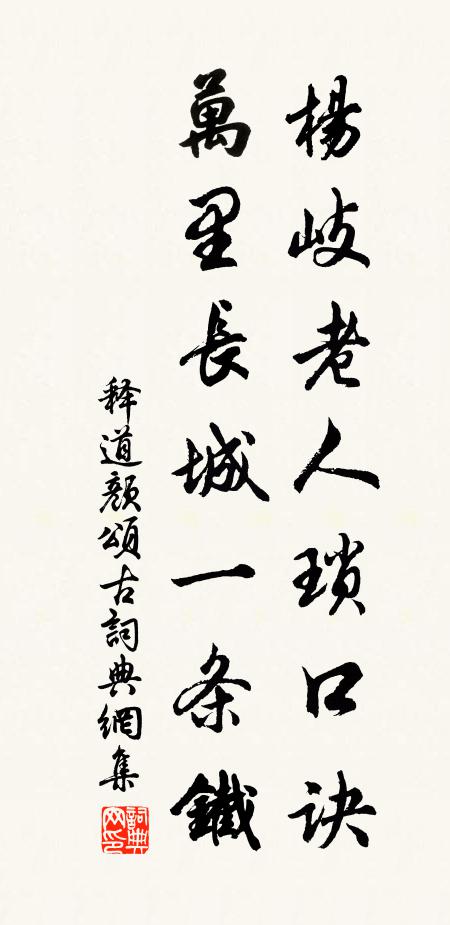 楊岐老人瑣口訣
萬里長城一条鐵
释道顏頌古詞典網集
詞典
网印